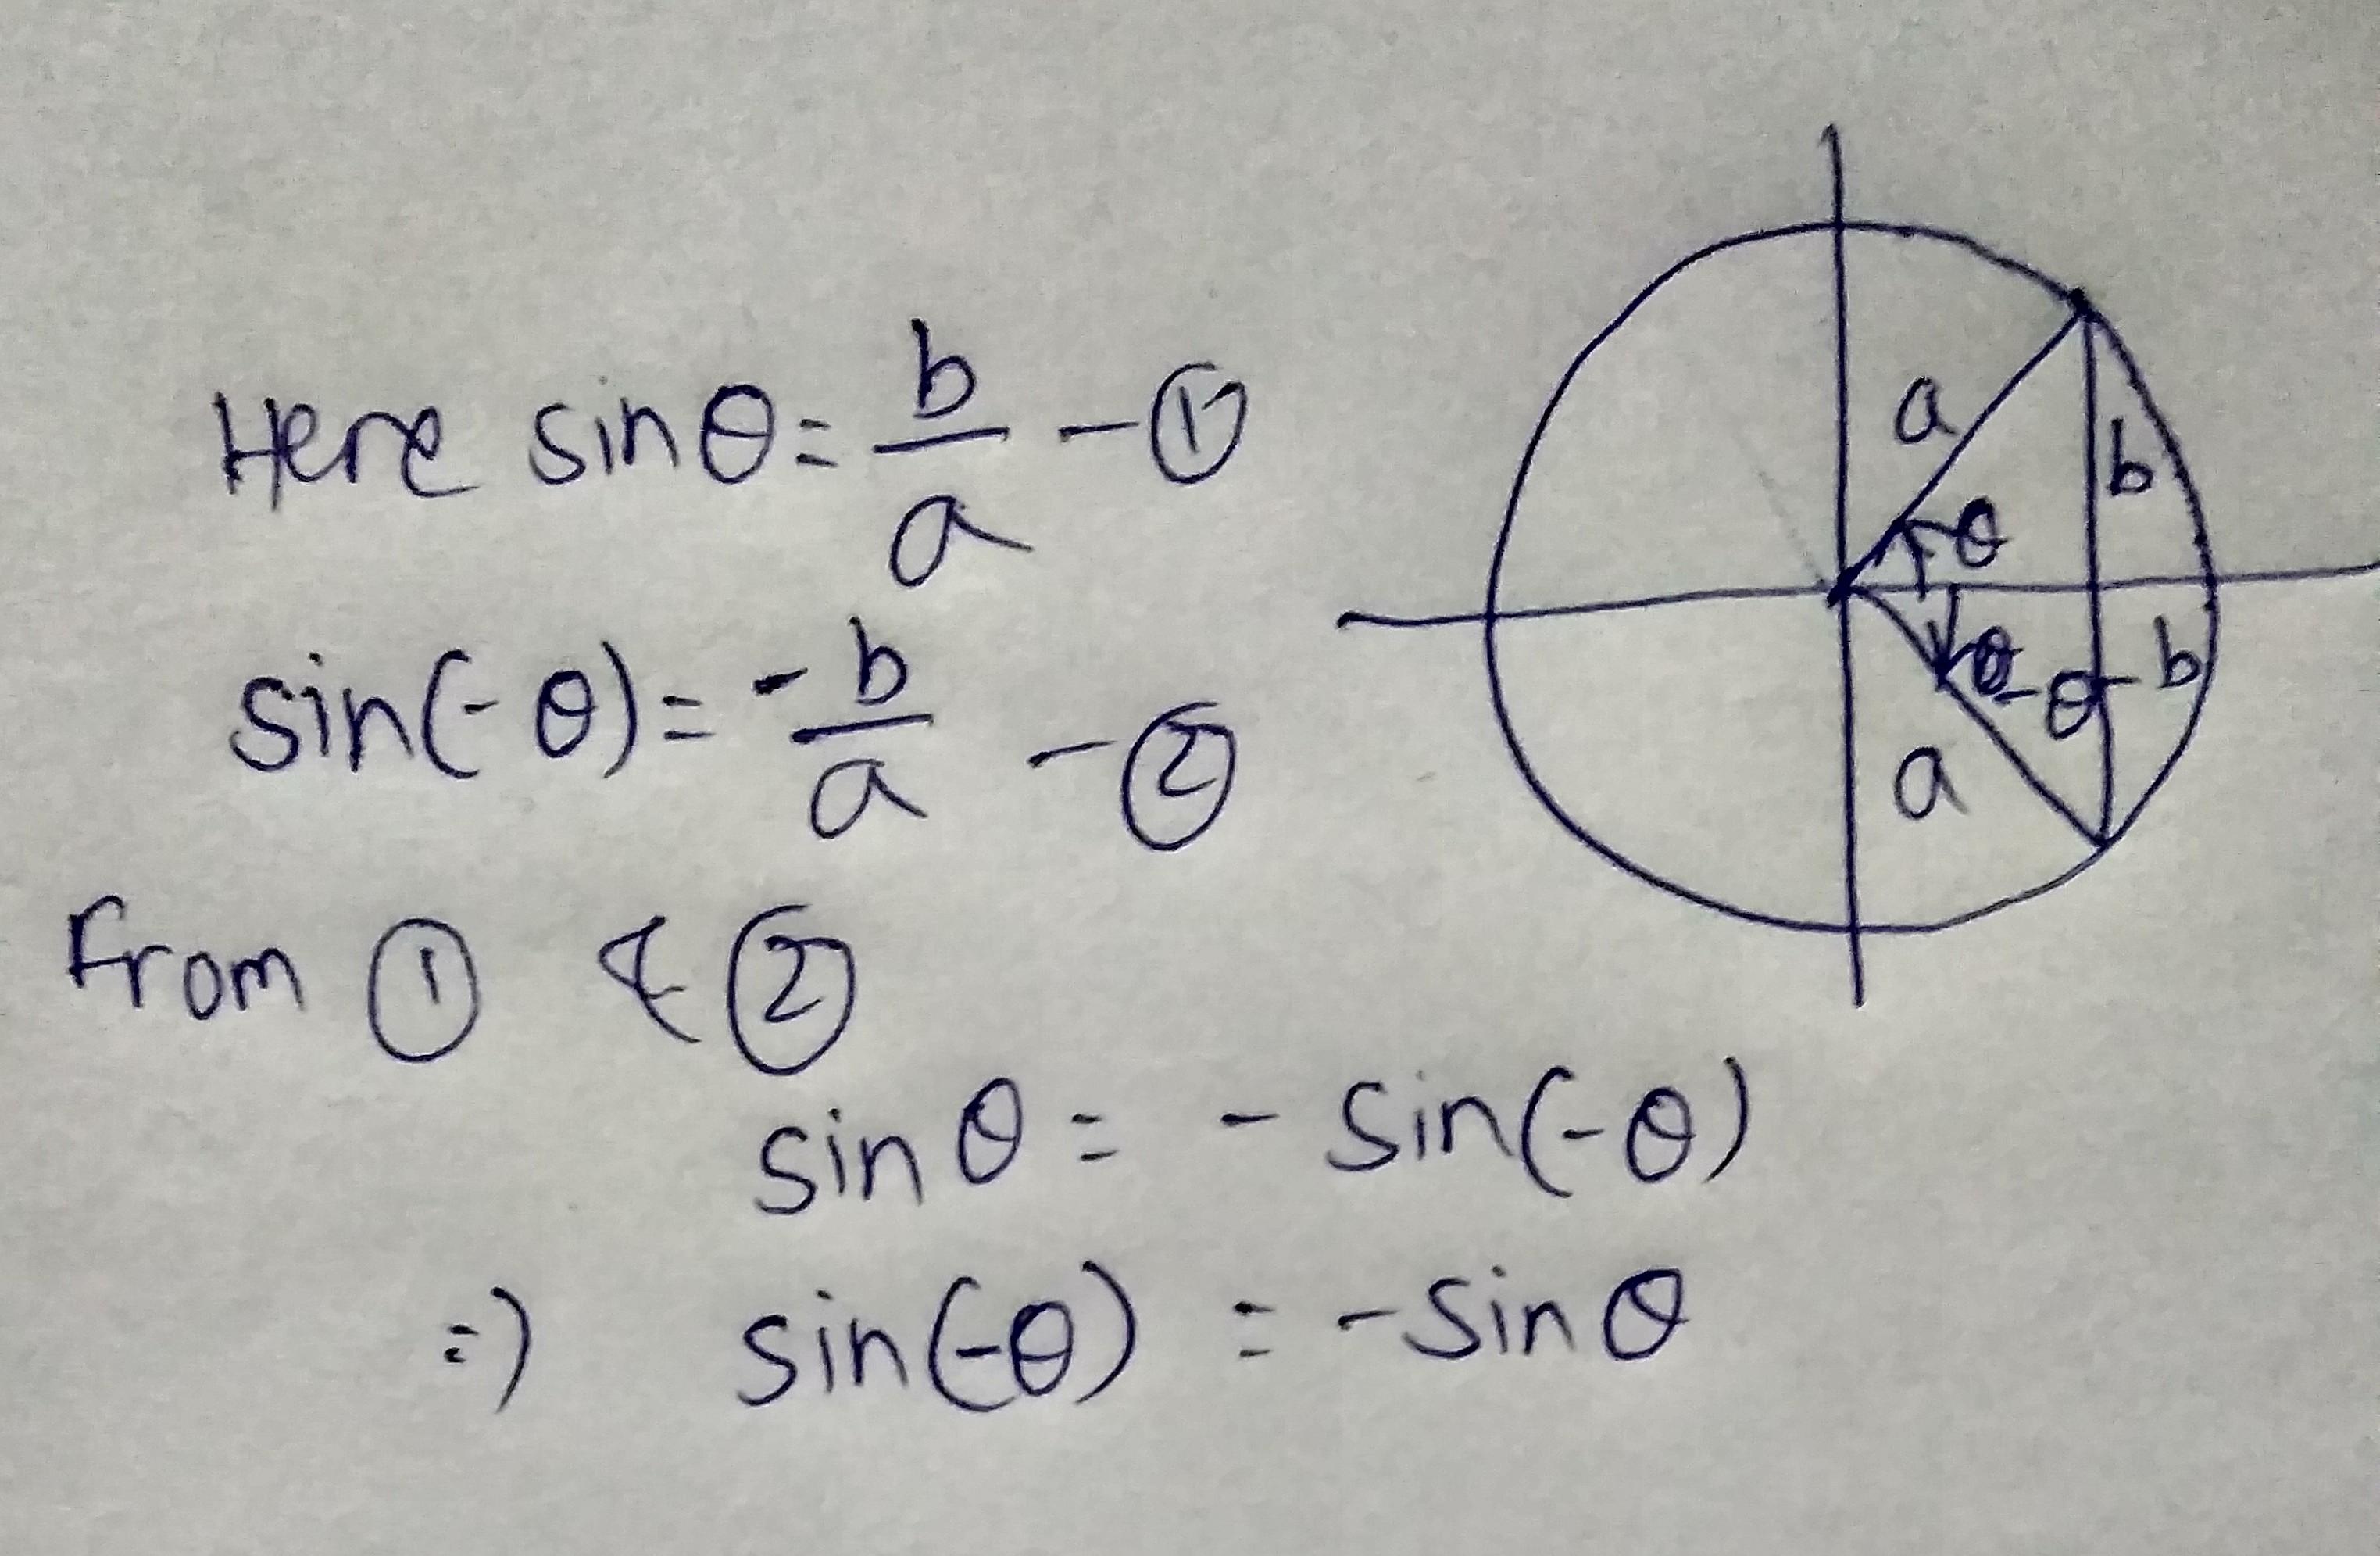 Here sin θ = b/a - ①
sin(-θ) = -b/a - ②
From ① & ②
sin θ = - sin(-θ)
⇒ sin(-θ) = - sin θ
a
b
θ
-θ
-b
a